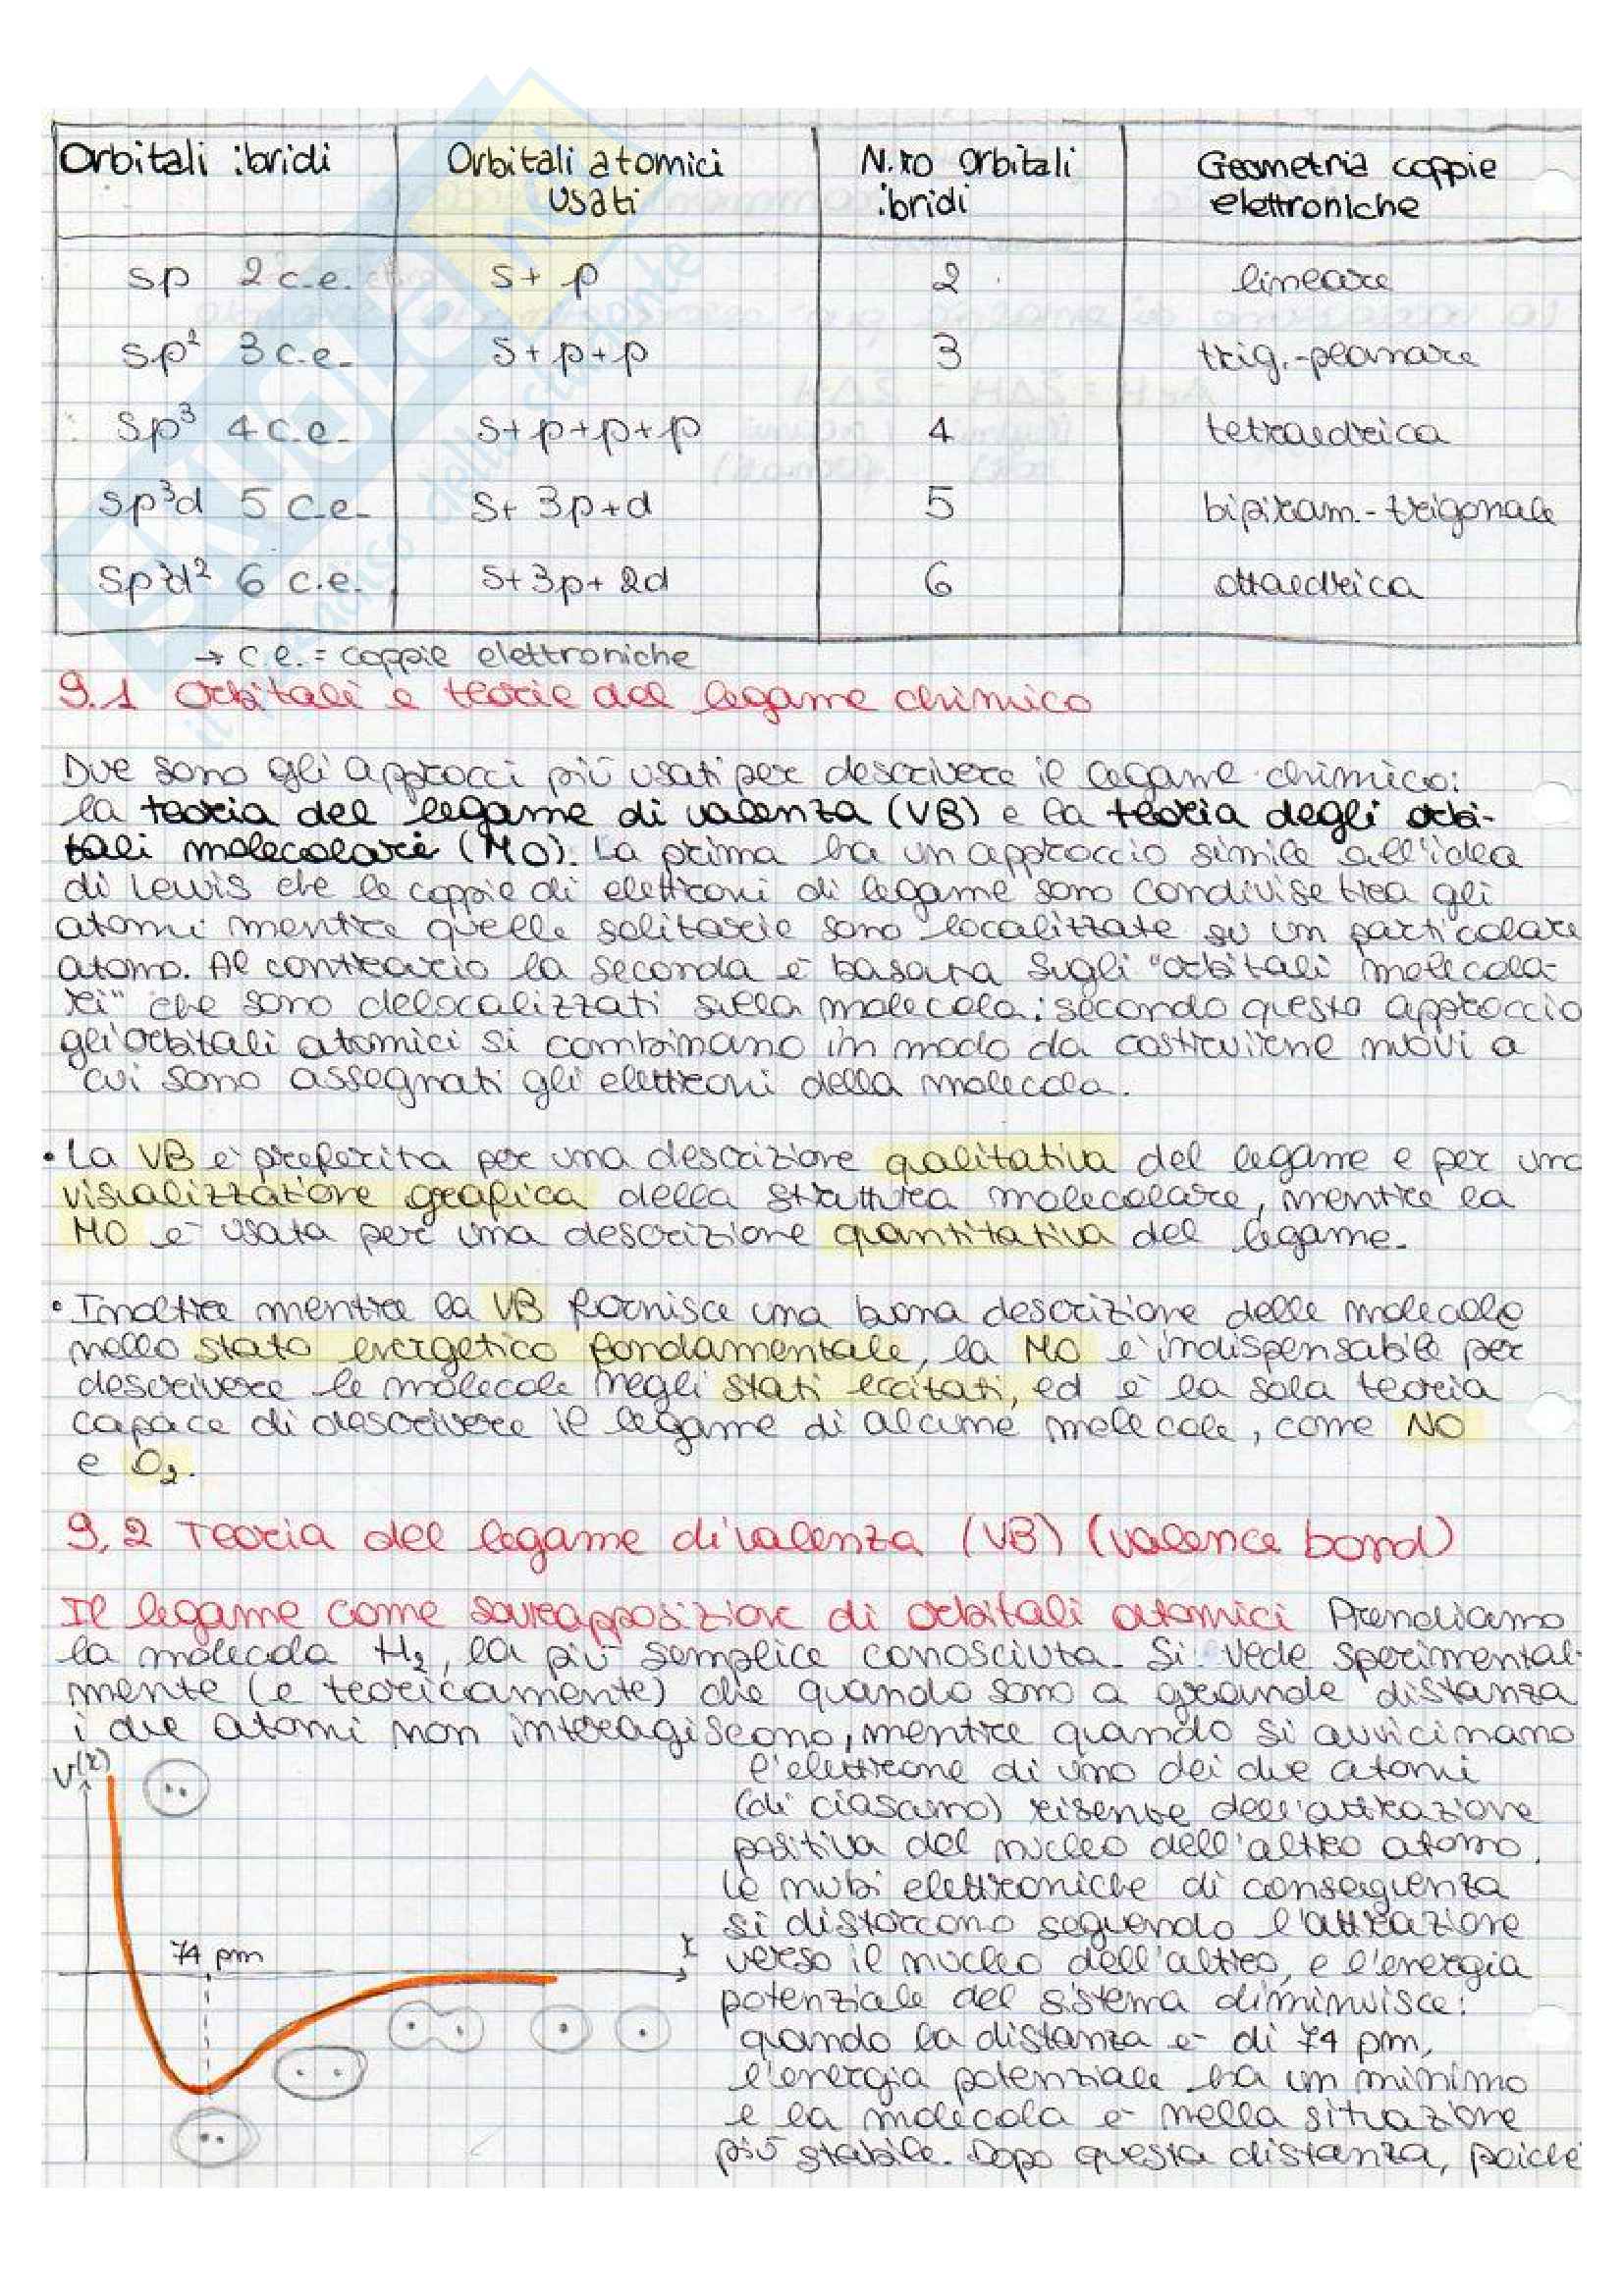 Orbitali ibridi | Orbitali atomici usati | N.ro orbitali ibridi | Geometria coppie elettroniche
sp 2 c.e. | s + p | 2 | lineare
sp² 3 c.e. | s + p + p | 3 | trig.-planare
sp³ 4 c.e. | s + p + p + p | 4 | tetraedrica
sp³d 5 c.e. | s + 3p + d | 5 | bipiram.-trigonale
sp³d² 6 c.e. | s + 3p + 2d | 6 | ottaedrica
→ c.e. = coppie elettroniche
9.1 Orbitali e teorie del legame chimico
Due sono gli approcci più usati per descrivere il legame chimico:
la teoria del legame di valenza (VB) e la teoria degli orbi-
tali molecolari (MO). La prima ha un approccio simile all'idea
di Lewis che le coppie di elettroni di legame sono condivise tra gli
atomi mentre quelle solitarie sono localizzate su un particolare
atomo. Al contrario la seconda è basata sugli "orbitali molecola-
ri" che sono delocalizzati sulla molecola: secondo questo approccio
gli orbitali atomici si combinano in modo da costruirne nuovi a
cui sono assegnati gli elettroni della molecola.
• La VB è preferita per una descrizione qualitativa del legame e per una
visualizzazione grafica della struttura molecolare, mentre la
MO è usata per una descrizione quantitativa del legame.
• Inoltre mentre la VB fornisce una buona descrizione delle molecole
nello stato energetico fondamentale, la MO è indispensabile per
descrivere le molecole negli stati eccitati, ed è la sola teoria
capace di descrivere il legame di alcune molecole, come NO
e O₂.
9.2 Teoria del legame di valenza (VB) (valence bond)
Il legame come sovrapposizione di orbitali atomici Prendiamo
la molecola H₂, la più semplice conosciuta. Si vede sperimental-
mente (e teoricamente) che quando sono a grande distanza
i due atomi non interagiscono, mentre quando si avvicinano
l'elettrone di uno dei due atomi
(di ciascuno) risente dell'attrazione
positiva del nucleo dell'altro atomo.
Le nubi elettroniche di conseguenza
si distorcono seguendo l'attrazione
verso il nucleo dell'altro, e l'energia
potenziale del sistema diminuisce:
quando la distanza è di 74 pm,
l'energia potenziale ha un minimo
e la molecola è nella situazione
più stabile. Dopo questa distanza, poiché
V(r)
74 pm
r
SKUOLA.NET
il paradiso dello studente